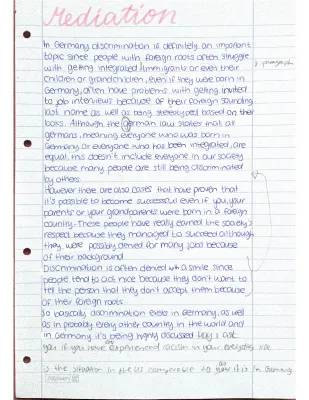 Mediation
In Germany discrimination is definitely an important
topic since people with foreign roots often struggle
with getting integrated. Immigrants or even their
children or grandchildren, even if they were born in
Germany, often have problems with getting invited
to job interviews because of their foreign sounding
last name as well as being stereotyped based on their
looks. Although the german law states that all
germans, meaning everyone who was born in
Germany or everyone who has been integrated, are
equal, this doesn't include everyone in our society
because many people are still being discriminated
by others.
However there are also cases that have proven that
it's possible to become successful even if you, your
parents or your grandparents were born in a foreign
country. These people have really earned the society's
respect because they managed to succeed although
they were possibly denied for many jobs because
of their background.
Discrimination is often denied with a smile since
people tend to act nice because they don't want to
tell the person that they don't accept them because
of their foreign roots.
So basically discrimination exists in Germany, as well
as in probably every other country in the world and
in Germany it's being highly discussed. May I ask
you if you have experienced racism in your everyday life
the situation in the US comparable to how it is in Germany
paragraph